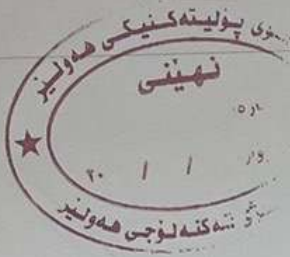 پۆلیتەکنیکی هەولێر
نهێنی
٢٠ / /
تەکنەلۆجی هەولێر